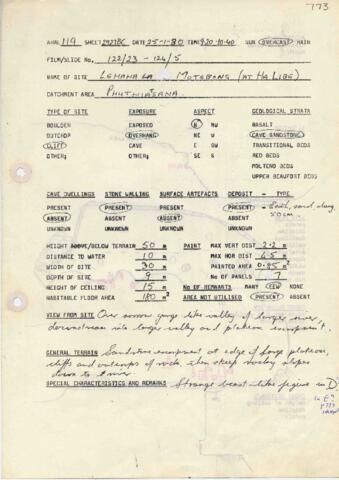 773
ARAL 119 SHEET 2927BC DATE 25-1-80 TIME 9.20-10.40 SUN OVERCAST RAIN
FILM/SLIDE No. 122/23 - 124/5
NAME OF SITE LEHAHA LA MOTEBONG (AT HA LIBE)
CATCHMENT AREA PHUTHIATSANA.
TYPE OF SITE EXPOSURE ASPECT GEOLOGICAL STRATA
BOULDER EXPOSED N NW BASALT
OUTCROP OVERHANG NE W CAVE SANDSTONE
CLIFF CAVE E SW TRANSITIONAL BEDS
OTHER: OTHER: SE S RED BEDS
MOLTENO BEDS
UPPER BEAUFORT BEDS
CAVE DWELLINGS STONE WALLING SURFACE ARTEFACTS DEPOSIT - TYPE
PRESENT PRESENT PRESENT PRESENT - sand along
ABSENT ABSENT ABSENT ABSENT 50cm.
UNKNOWN UNKNOWN UNKNOWN UNKNOWN
HEIGHT ABOVE/BELOW TERRAIN 50 m PAINT MAX VERT DIST 2.2 m
DISTANCE TO WATER 10 m MAX HOR DIST 6.5 m
WIDTH OF SITE 30 m PAINTED AREA 0.85 m2
DEPTH OF SITE 9 m No OF PANELS 7
HEIGHT OF CEILING 15 m No OF REMNANTS MANY FEW NONE
HABITABLE FLOOR AREA 180 m2 AREA NOT UTILISED PRESENT ABSENT
VIEW FROM SITE Over narrow gorge like valley of larger river,
downstream into larger valley and plateau escarpment.
GENERAL TERRAIN Sandstone escarpment at edge of large plateau,
cliffs and outcrops of rock, also steep rocky slopes
down to river.
SPECIAL CHARACTERISTICS AND REMARKS Strange beast-like figure in D
in E?